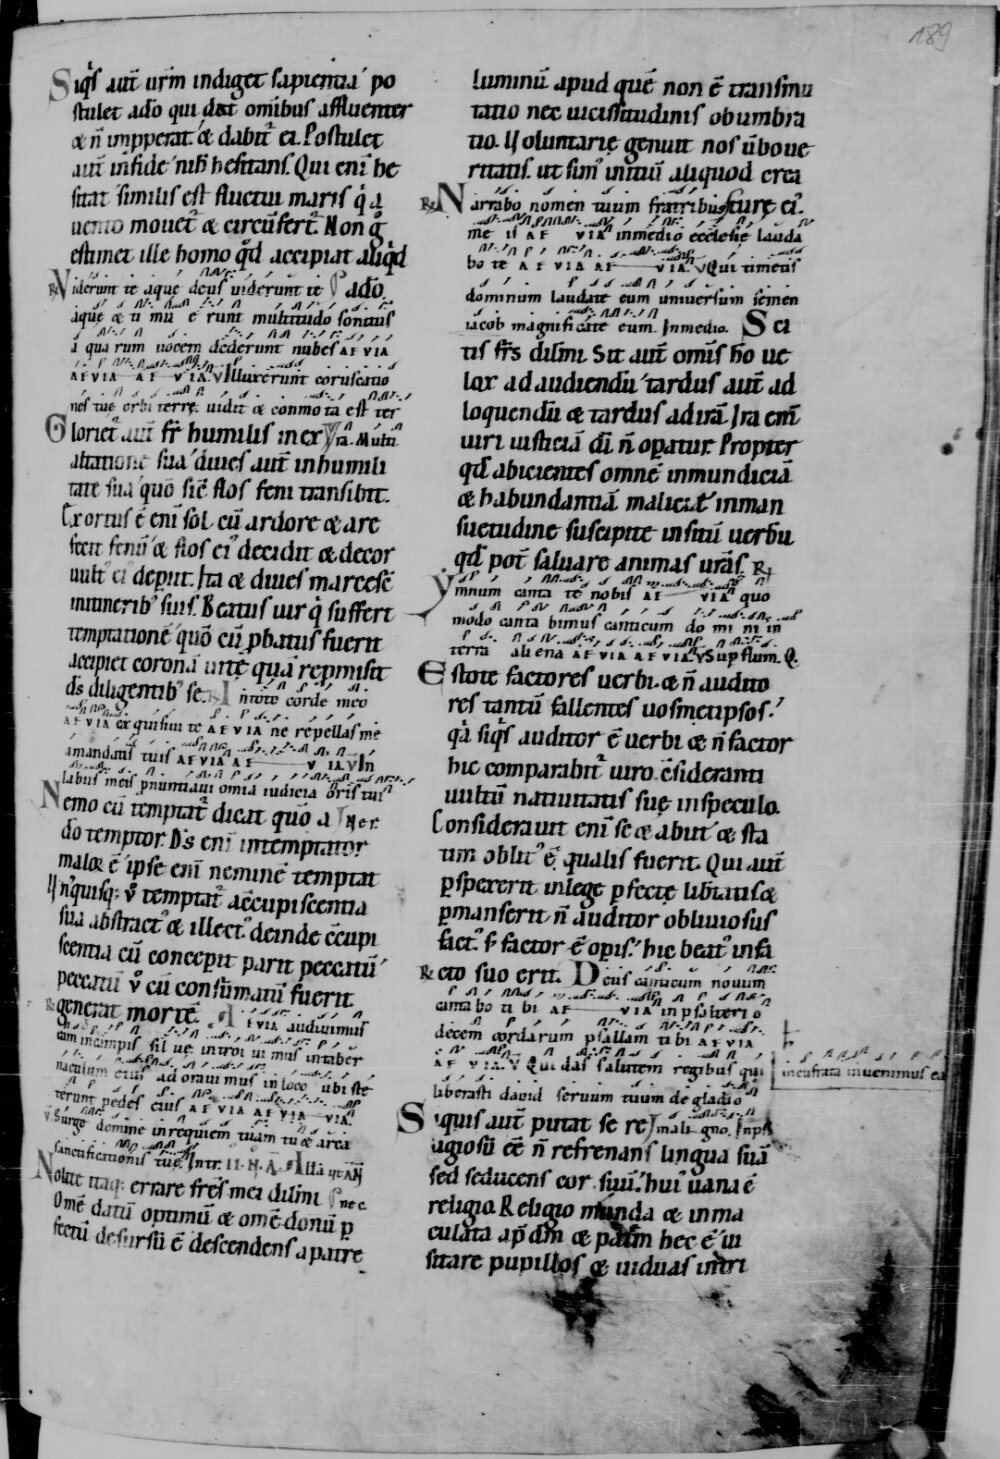 189
Siq̇s aut̄ ur̄m indiget sapientia po
stulet ad̄o qui dat omībus affluenter
& n̄ impperat. & dabit᷑ ei. Postulet
aut̄ in fide nih̄ hesitans. Qui enī he
sitat similis est fluctui maris q̇ a
uento mouet᷑ & circūfert᷑. Non g̊
estimet ille homo q̊d accipiat aliq̇d
℟ Viderunt te aque deus uiderunt te ad̄o.
aque & ti mu e runt multitudo sonitus
a qua rum uocem dederunt nubes AEVIA
AEVIA AE VIA. V Illuxerunt coruscatio
nes tuę orbi terrę. uidit & conmota est ter
Gloriet᷑ aut̄ fr̄ humilis in ex ra. Multi
altatione sua. diues aut̄ in humili
tate sua quō sic̄ flos feni transibit.
Exortus ē enī sol cū ardore & are
fecit fenū & flos eiꝰ decidit & decor
uultꝰ eiꝰ depiit. Ita & diues marcesc̄
in itineribꝰ suis. Beatus uir q̇ suffert
temptationē quō cū ꝓbatus fuerit
accipiet coronā uitę quā repmisit
d̄s diligentibꝰ se. ℟ In toto corde meo
AEVIA exquisiui te AEVIA ne repellas me
a mandatis tuis AEVIA AE VIA. V In
labiis meis ꝓnuntiaui om̄ia iudicia oris tui
Nemo cū temptat᷑ dicat quō a Ne r.
d̄o temptor. D̄s enī intemptator
malo& ē ipse enī neminē temptat
Vn̄quisq; ů temptat᷑ a c̄cupiscentia
sua abstractꝰ & illectꝰ. deinde c̄cupi
scentia cū conceperit parit peccatū
peccatū ů cū consūmatū fuerit
℟ generat mortē. AEVIA audiuimus
eam in campis siluę. introi ui mus in taber
naculum eius adorauimus in loco ubi ste
terunt pedes eius AEVIA AEVIA VIA.
V Surge domine in requiem tuam tu & arca
sanctificationis tuę. Intr. II. N. A. Illa ut AN
Nolite itaq; errare fr̄es mei dilmi ne c
Omē datū optimū & omē donū p̄
fectū desursū ē descendens a patre
luminū apud quē non ē transmu
tatio nec uicissitudinis obumbra
tio. Voluntarię genuit nos ůbo ue
ritatis. ut simꝰ initiū aliquod crea
℟ Narrabo nomen tuum fratribus turę eiꝰ.
me is AE VIA in medio ecclesię lauda
bo te AEVIA AE VIA. V Qui timetis
dominum laudate eum uniuersum semen
iacob magnificate eum. In medio. Sci
tis fr̄s dilmi. Sit aut̄ omīs h̄o ue
lox ad audiendū tardus aut̄ ad
loquendū & tardus ad irā. Ira enī
uiri iusticiā d̄i n̄ op̄atur. Propter
qd̄ abicientes omnē inmundiciā
& habundantiā malicię in man
suetudine suscipite insitū uerbū
qd̄ pot̄ saluare animas ur̄as. ℟
Ymnum canta te nobis AE VIA quo
modo canta bimus canticum do mi ni in
terra aliena AEVIA AEVIA. V Sup flum. Q.
Estote factores uerbi. & n̄ audito
res tantū fallentes uosmetipsos.
q̇a siq̇s auditor ē uerbi & n̄ factor
hic comparabit᷑ uiro c̄sideranti
uultū natiuitatis suę in speculo.
Considerauit enī se & abiit & sta
tim oblitꝰ ē qualis fuerit. Qui aut̄
p̄spexerit in lege p̄fectę lib̄tatis &
p̄manserit n̄ auditor obliuiosus
factꝰ s; factor ē op̄is. hic beatꝰ in fa
℟ cto suo erit. Deus canticum nouum
canta bo ti bi AE VIA in psalterio
decem cordarum psallam tibi AEVIA
AE VIA. V Qui das salutem regibus qui
ineufrata inuenimus ea
liberasti dauid seruum tuum de gladio
Siquis aut̄ putat se re mali gno. In ps
ligiosū ēē n̄ refrenans lingua suā
sed seducens cor suū. huiꝰ uana ē
religio. Religio munda & inma
culata ap̄ dm̄ & patrē hec ē ui
sitare pupillos & uiduas in tri